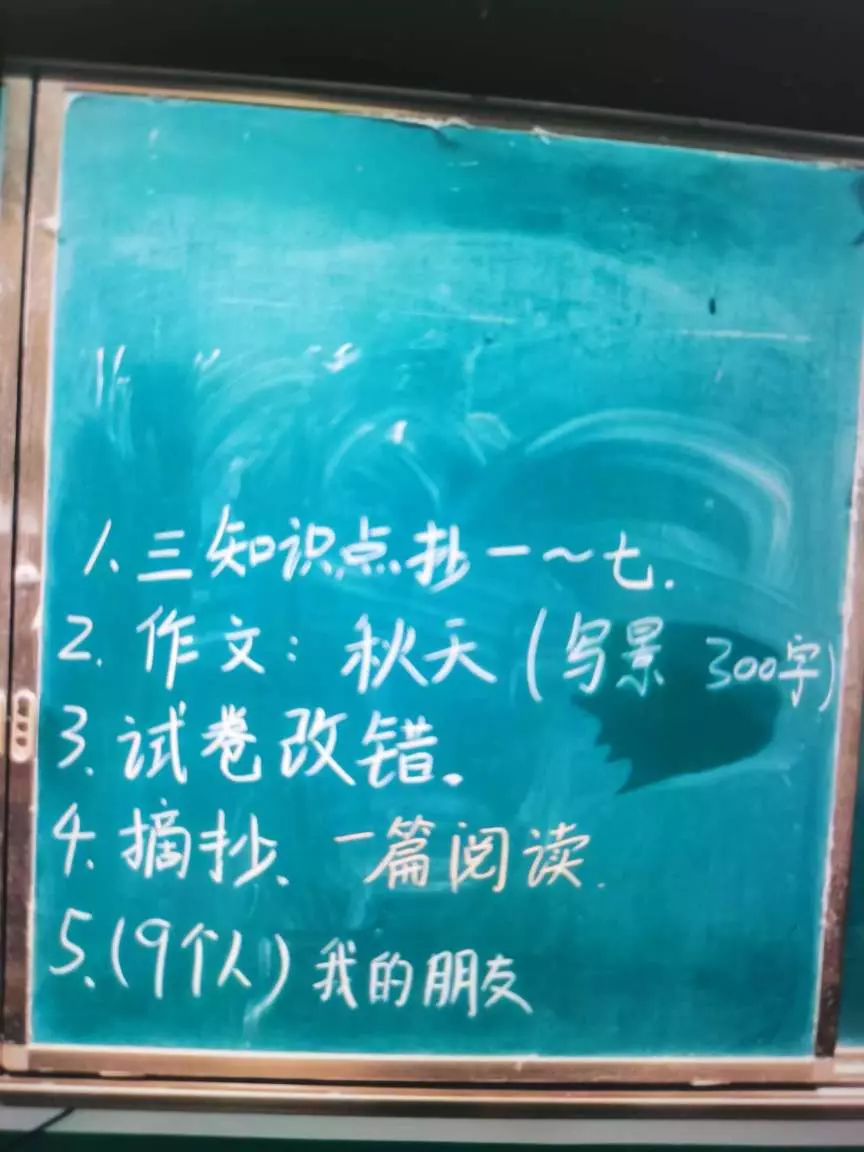 1. 三知识点抄一～七.
2. 作文: 秋天 (写景 300字)
3. 试卷改错.
4. 摘抄、一篇阅读.
5. (9个人) 我的朋友